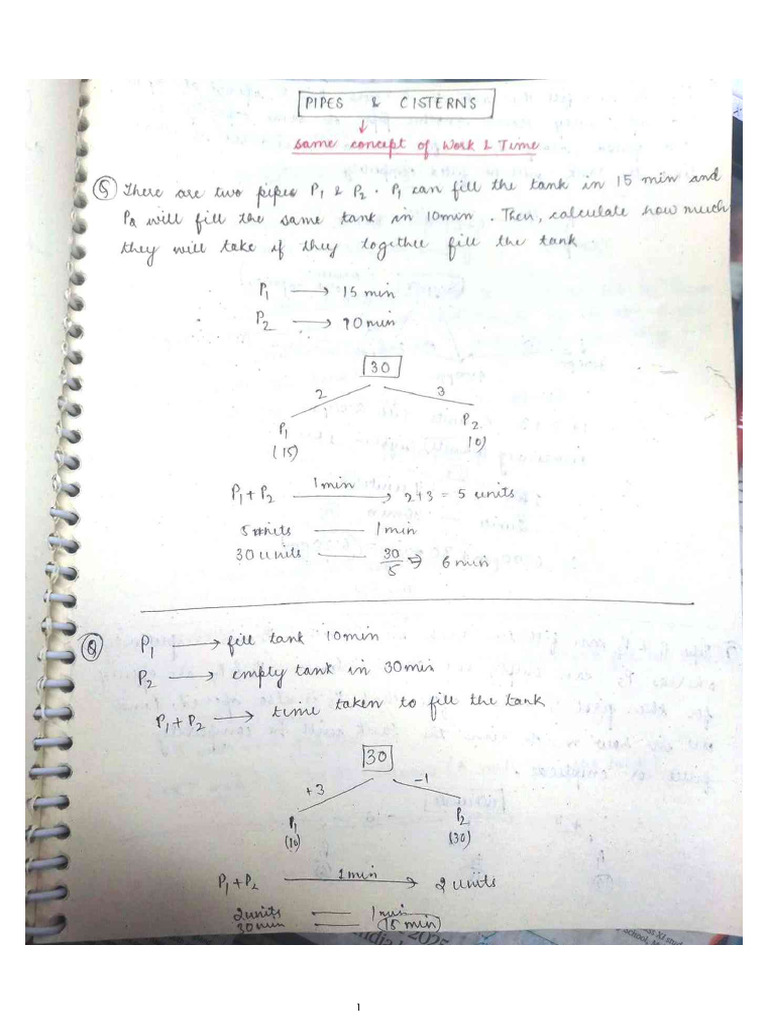 PIPES & CISTERNS
↓
same concept of Work & Time
Q There are two pipes P1 & P2. P1 can fill the tank in 15 min and
P2 will fill the same tank in 10min. Then, calculate how much
they will take if they together fill the tank
P1 → 15 min
P2 → 10 min
30
2 3
P1 P2
(15) (10)
P1 + P2 1min → 2+3 = 5 units
5 units — 1 min
30 units — 30/5 ⇒ 6 min
Q P1 → fill tank 10min
P2 → empty tank in 30min
P1+P2 → time taken to fill the tank
30
+3 -1
P1 P2
(10) (30)
P1+P2 1min → 2 units
2units = 1 min
30 min = 15 min
2025
1